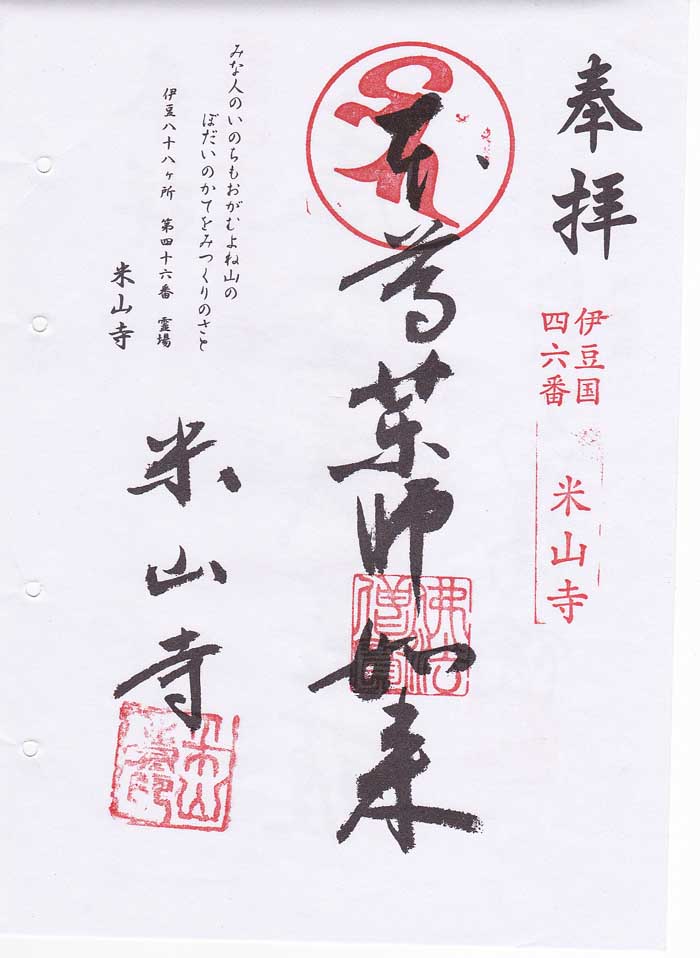 奉拝
伊豆国
四六番
米山寺
本尊薬師如来
佛法
僧寶
みな人のいのちもおがむよね山の
ぼだいのかてをみつくりのさと
伊豆八十八ヶ所 第四十六番 霊場
米山寺
米山寺